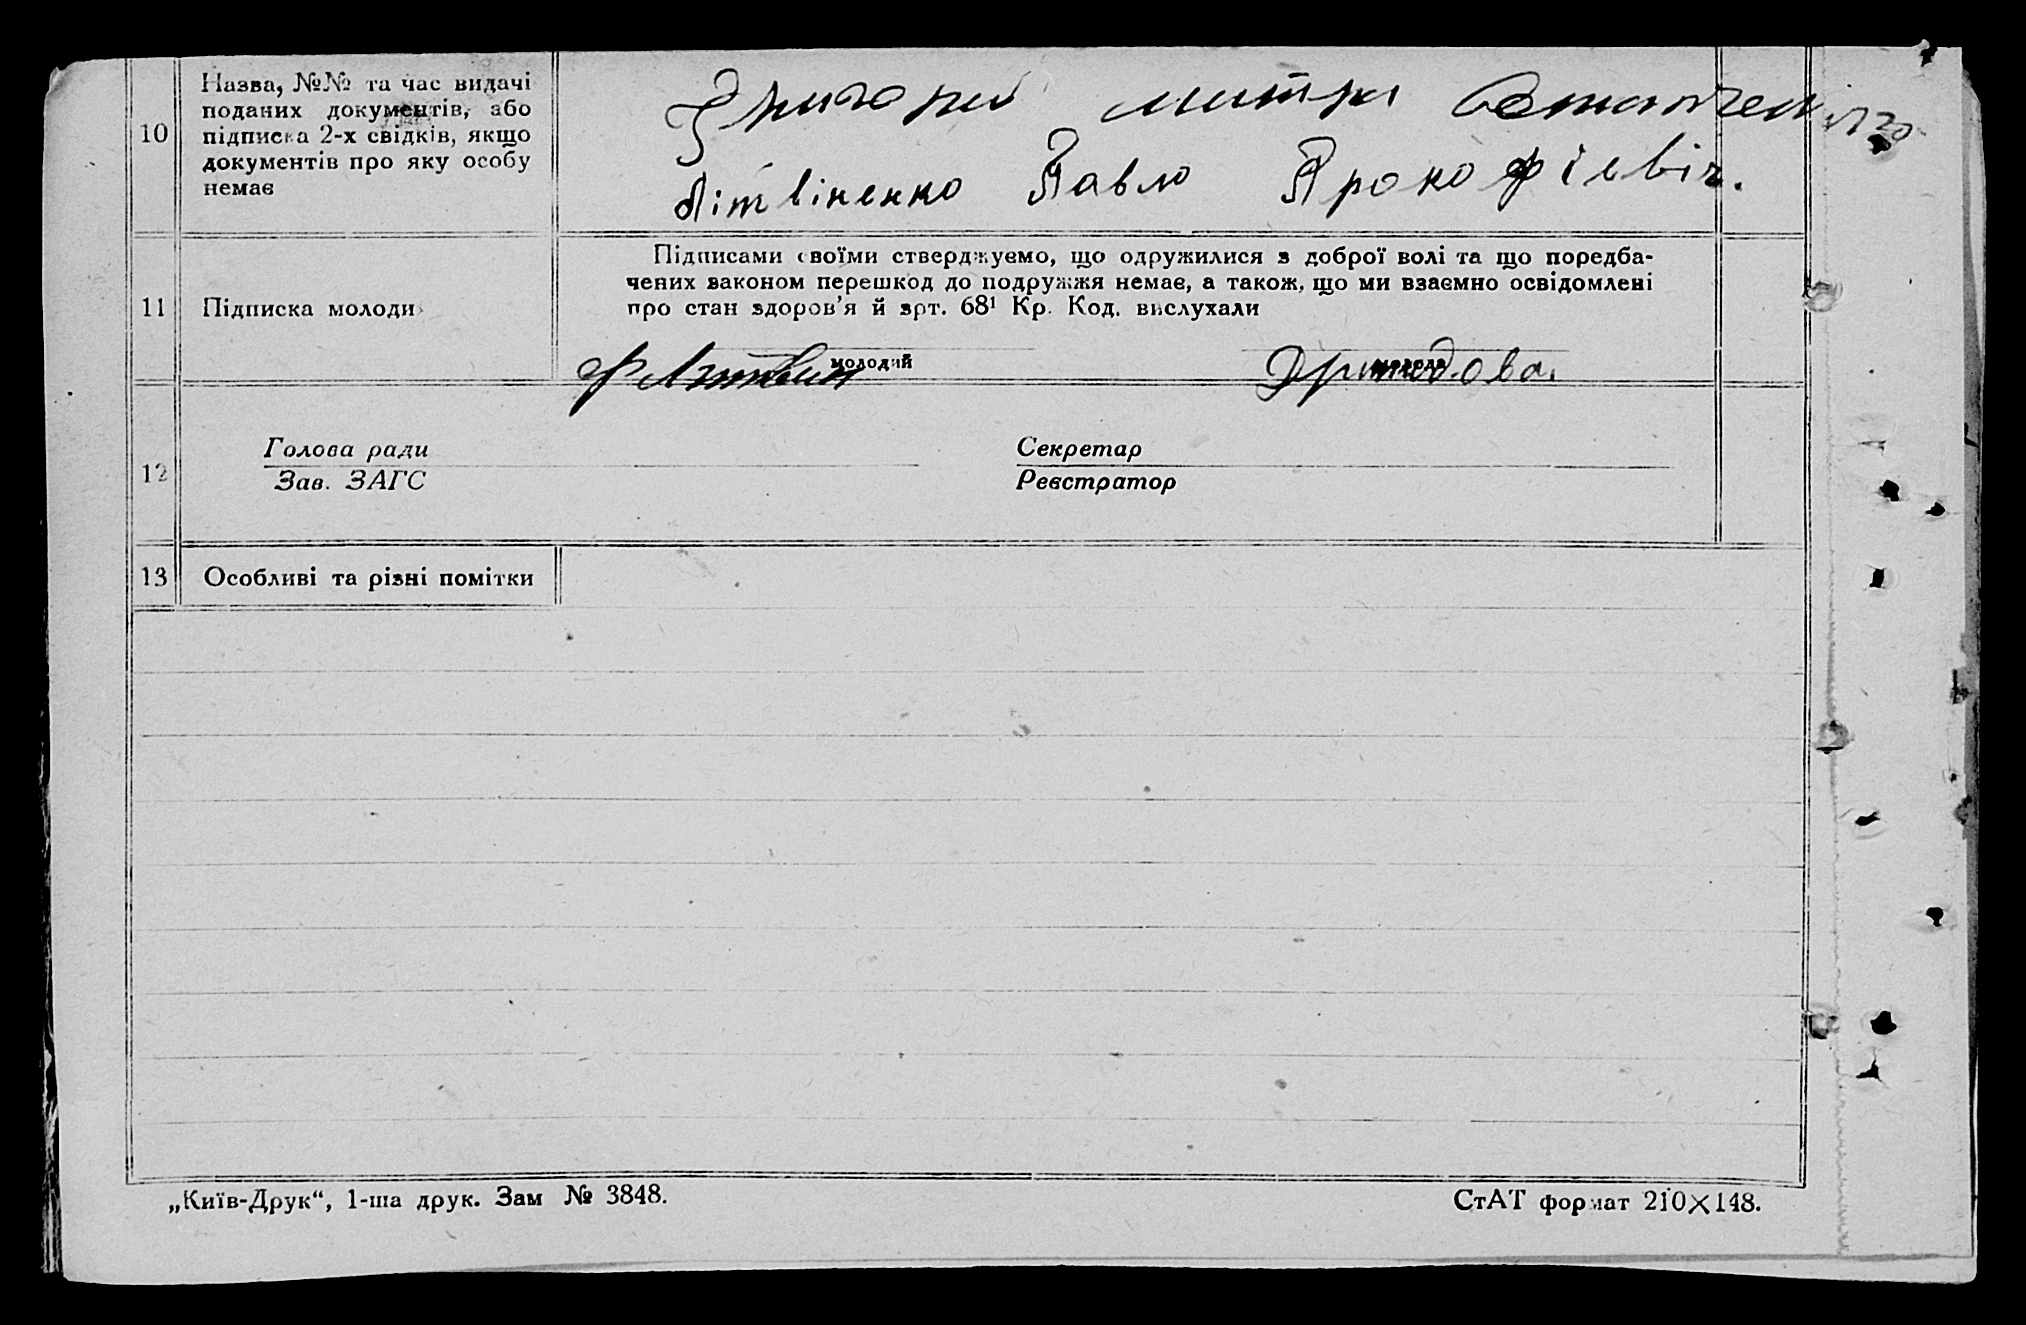 10
Назва, №№ та час видачі
поданих документів, або
підписка 2-х свідків, якщо
документів про яку особу
немає
Літвіненко Павло Прокофієвіч.
11
Підписка молоди
Підписами своїми стверджуємо, що одружилися з доброї волі та що поредба-
чених законом перешкод до подружжя немає, а також, що ми взаємно освідомлені
про стан здоров'я й арт. 68¹ Кр. Код. вислухали
молодий
молода
12
Голова ради
Зав. ЗАГС
Секретар
Реєстратор
13
Особливі та різні помітки
„Київ-Друк“, 1-ша друк. Зам № 3848.
СтАТ формат 210×148.